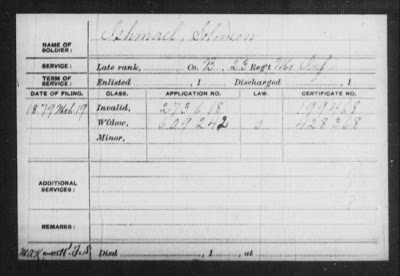 Ishmael, Solomon
NAME OF SOLDIER:
SERVICE: Late rank, Co. B, 23 Reg't Mo Inf
TERM OF SERVICE: Enlisted , 1 Discharged , 1
DATE OF FILING. CLASS. APPLICATION NO. LAW. CERTIFICATE NO.
1879 Mch 19 Invalid, 273618 199468
Widow, 609242 0 428368
Minor,
ADDITIONAL SERVICES:
REMARKS:
Died , 1 , at